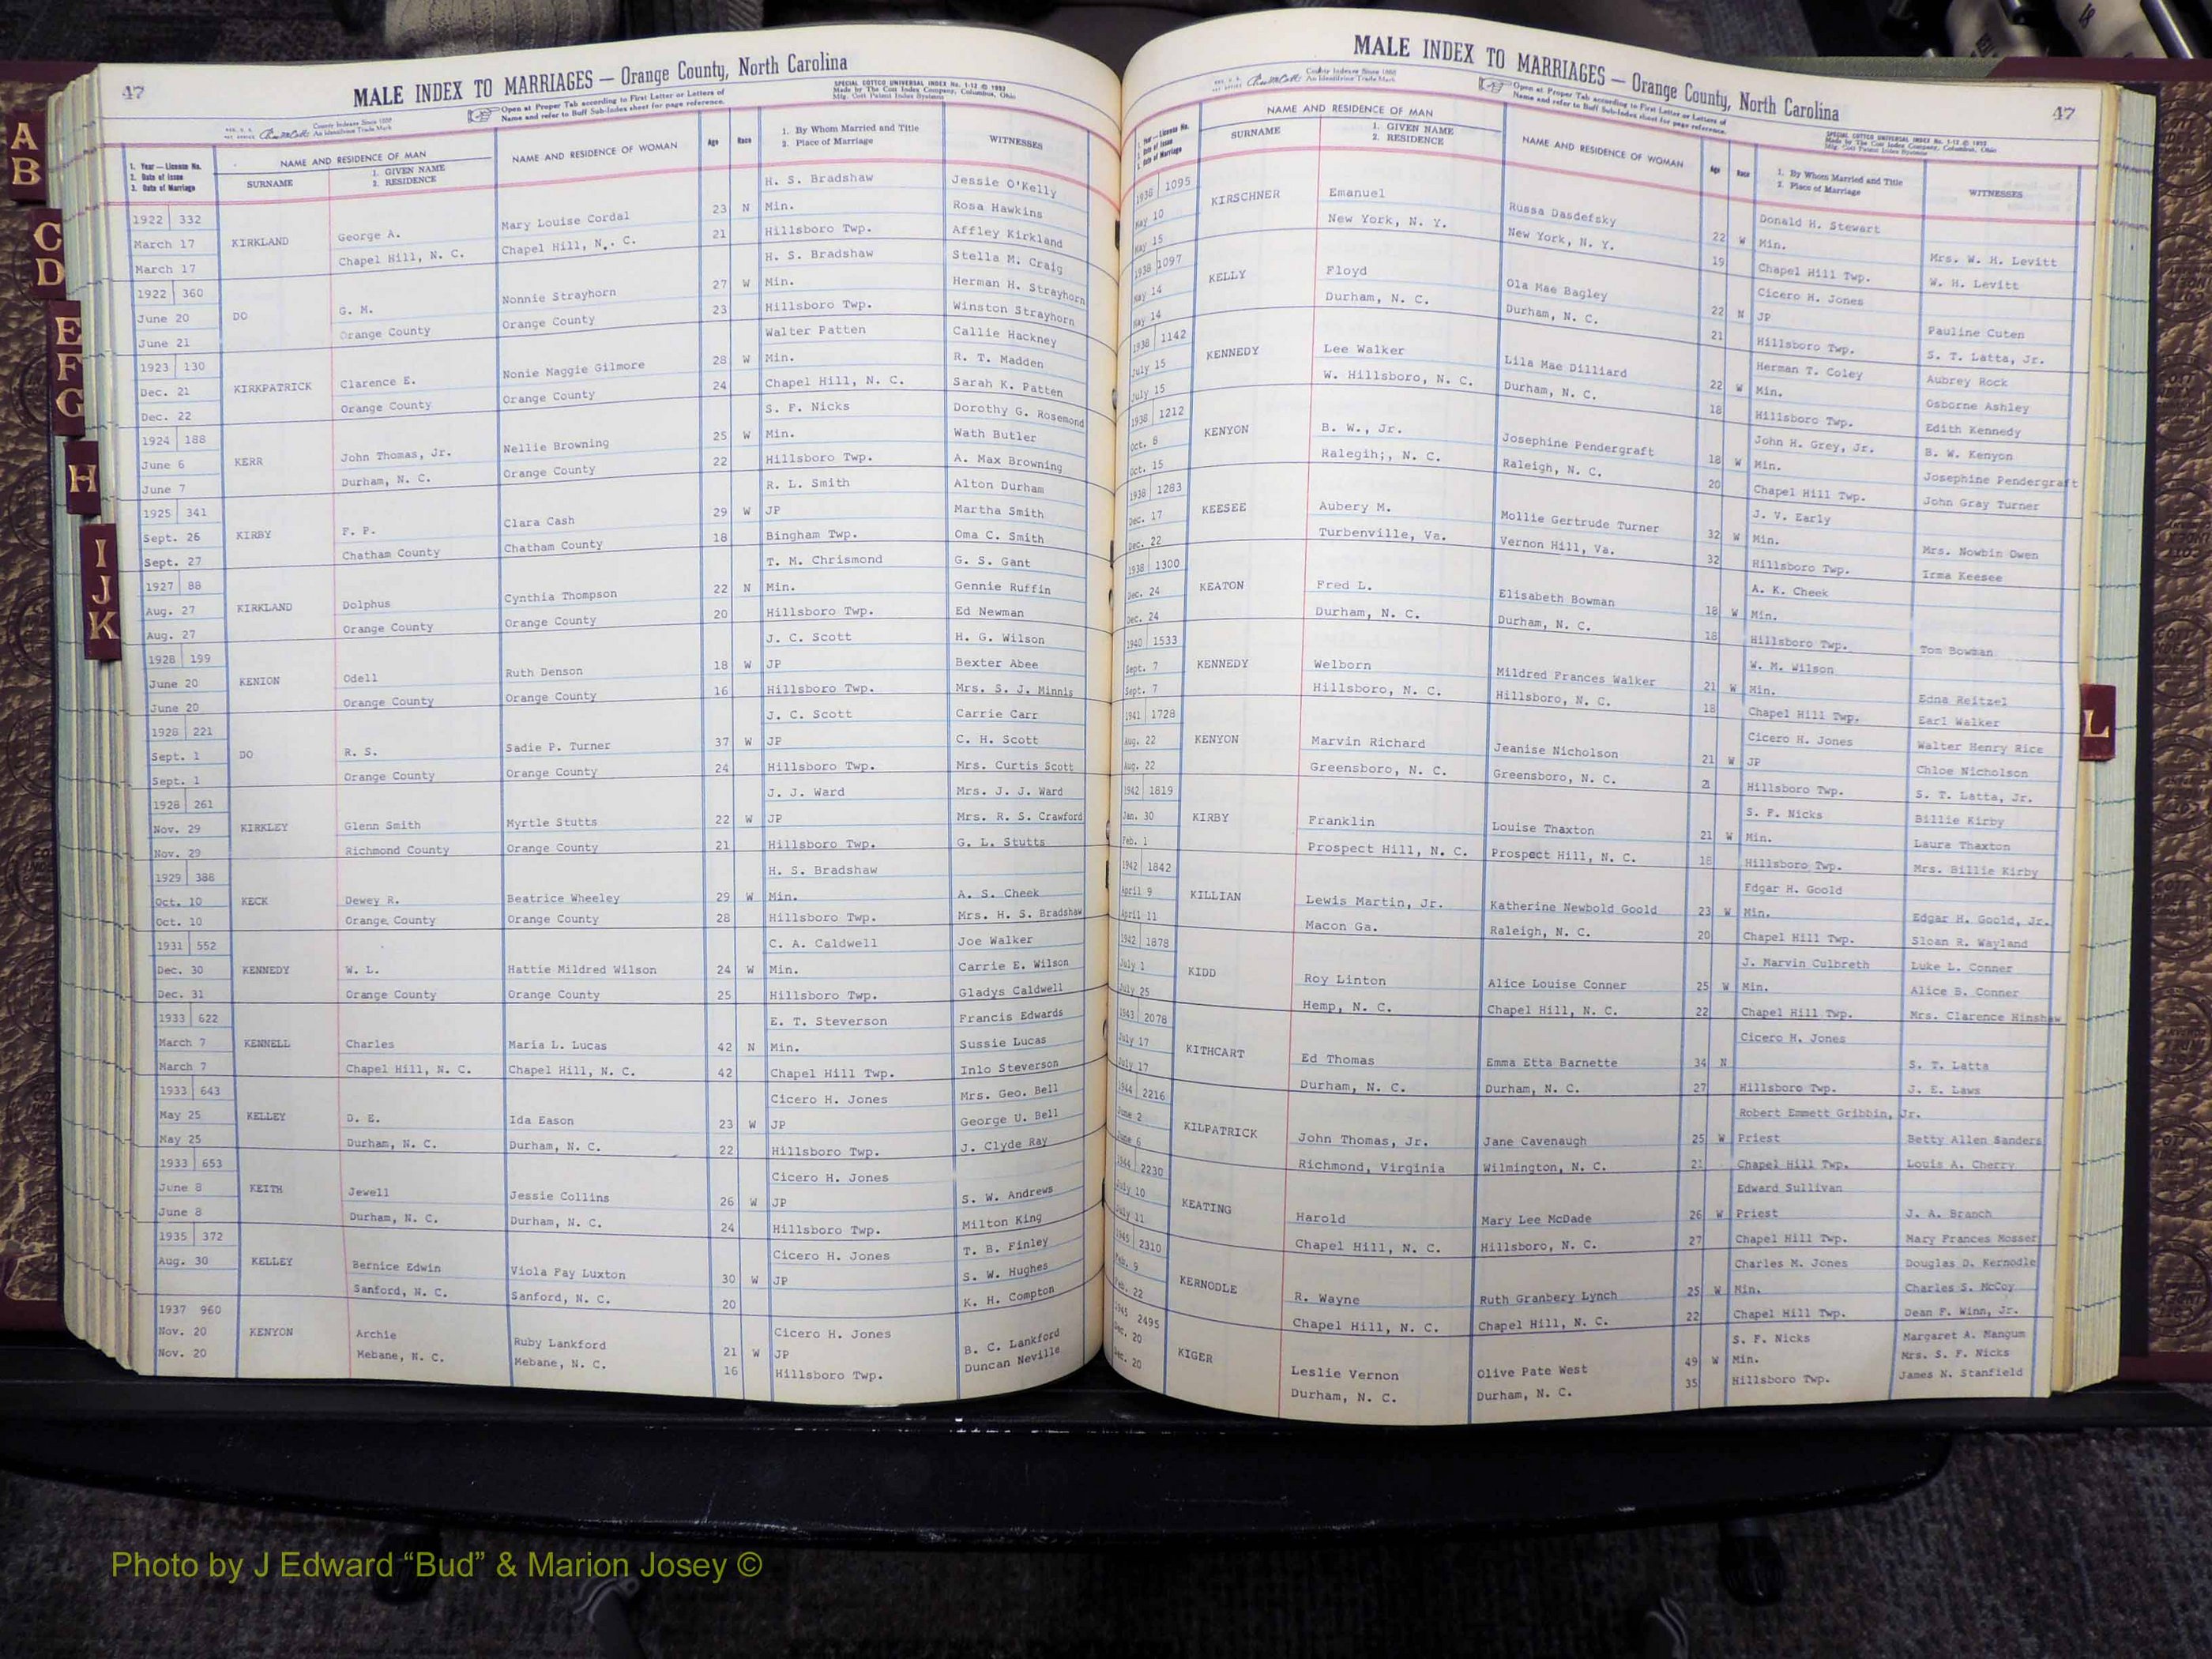 47
MALE INDEX TO MARRIAGES — Orange County, North Carolina
County Indexes Since 1888
An Identifying Trade Mark
Open at Proper Tab according to First Letter or Letters of
Name and refer to Buff Sub-Index sheet for page reference.
SPECIAL COTTCO UNIVERSAL INDEX No. 1-12 © 1952
Made by The Cott Index Company, Columbus, Ohio
Mfg. Cott Patent Index Systems
1. Year — License No.
2. Date of Issue
3. Date of Marriage
NAME AND RESIDENCE OF MAN
SURNAME
1. GIVEN NAME
2. RESIDENCE
NAME AND RESIDENCE OF WOMAN
Age
Race
1. By Whom Married and Title
2. Place of Marriage
WITNESSES
H. S. Bradshaw Jessie O'Kelly
1922 332 Mary Louise Cordal 23 N Min. Rosa Hawkins
March 17 KIRKLAND George A. Chapel Hill, N. C. 21 Hillsboro Twp. Affley Kirkland
March 17 Chapel Hill, N. C.
H. S. Bradshaw Stella M. Craig
1922 360 Nonnie Strayhorn 27 W Min. Herman H. Strayhorn
June 20 DO G. M. Orange County 23 Hillsboro Twp. Winston Strayhorn
June 21 Orange County
Walter Patten Callie Hackney
1923 130 Nonie Maggie Gilmore 28 W Min. R. T. Madden
Dec. 21 KIRKPATRICK Clarence E. Orange County 24 Chapel Hill, N. C. Sarah K. Patten
Dec. 22 Orange County
S. F. Nicks Dorothy G. Rosemond
1924 188 Nellie Browning 25 W Min. Wath Butler
June 6 KERR John Thomas, Jr. Orange County 22 Hillsboro Twp. A. Max Browning
June 7 Durham, N. C.
R. L. Smith Alton Durham
1925 341 Clara Cash 29 W JP Martha Smith
Sept. 26 KIRBY F. P. Chatham County 18 Bingham Twp. Oma C. Smith
Sept. 27 Chatham County
T. M. Chrismond G. S. Gant
1927 88 Cynthia Thompson 22 N Min. Gennie Ruffin
Aug. 27 KIRKLAND Dolphus Orange County 20 Hillsboro Twp. Ed Newman
Aug. 27 Orange County
J. C. Scott H. G. Wilson
1928 199 Ruth Denson 18 W JP Bexter Abee
June 20 KENION Odell Orange County 16 Hillsboro Twp. Mrs. S. J. Minnis
June 20 Orange County
J. C. Scott Carrie Carr
1928 221 Sadie P. Turner 37 W JP C. H. Scott
Sept. 1 DO R. S. Orange County 24 Hillsboro Twp. Mrs. Curtis Scott
Sept. 1 Orange County
J. J. Ward Mrs. J. J. Ward
1928 261 Myrtle Stutts 22 W JP Mrs. R. S. Crawford
Nov. 29 KIRKLEY Glenn Smith Orange County 21 Hillsboro Twp. G. L. Stutts
Nov. 29 Richmond County
H. S. Bradshaw
1929 388 Beatrice Wheeley 29 W Min. A. S. Cheek
Oct. 10 KECK Dewey R. Orange County 28 Hillsboro Twp. Mrs. H. S. Bradshaw
Oct. 10 Orange County
1931 552 C. A. Caldwell Joe Walker
Dec. 30 KENNEDY W. L. Hattie Mildred Wilson 24 W Min. Carrie E. Wilson
Dec. 31 Orange County Orange County 25 Hillsboro Twp. Gladys Caldwell
1933 622 E. T. Steverson Francis Edwards
March 7 KENNELL Charles Maria L. Lucas 42 N Min. Sussie Lucas
March 7 Chapel Hill, N. C. Chapel Hill, N. C. 42 Chapel Hill Twp. Inlo Steverson
1933 643 Cicero H. Jones Mrs. Geo. Bell
May 25 KELLEY D. E. Ida Eason 23 W JP George U. Bell
May 25 Durham, N. C. Durham, N. C. 22 Hillsboro Twp. J. Clyde Ray
1933 653 Cicero H. Jones
June 8 KEITH Jewell Jessie Collins 26 W JP S. W. Andrews
June 8 Durham, N. C. Durham, N. C. 24 Hillsboro Twp. Milton King
1935 372 Cicero H. Jones T. B. Finley
Aug. 30 KELLEY Bernice Edwin Viola Fay Luxton 30 W JP S. W. Hughes
Sanford, N. C. Sanford, N. C. 20 K. H. Compton
1937 960 Cicero H. Jones
Nov. 20 KENYON Archie Ruby Lankford 21 W JP B. C. Lankford
Nov. 20 Mebane, N. C. Mebane, N. C. 16 Hillsboro Twp. Duncan Neville
MALE INDEX TO MARRIAGES — Orange County, North Carolina
47
County Indexes Since 1888
An Identifying Trade Mark
Open at Proper Tab according to First Letter or Letters of
Name and refer to Buff Sub-Index sheet for page reference.
SPECIAL COTTCO UNIVERSAL INDEX No. 1-12 © 1952
Made by The Cott Index Company, Columbus, Ohio
Mfg. Cott Patent Index Systems
1. Year — License No.
2. Date of Issue
3. Date of Marriage
NAME AND RESIDENCE OF MAN
SURNAME
1. GIVEN NAME
2. RESIDENCE
NAME AND RESIDENCE OF WOMAN
Age
Race
1. By Whom Married and Title
2. Place of Marriage
WITNESSES
1938 1095 Donald H. Stewart
May 10 KIRSCHNER Emanuel Russa Dasdefsky 22 W Min. Mrs. W. H. Levitt
May 15 New York, N. Y. New York, N. Y. 19 Chapel Hill Twp. W. H. Levitt
1938 1097 Cicero H. Jones
May 14 KELLY Floyd Ola Mae Bagley 22 N JP Pauline Cuten
May 14 Durham, N. C. Durham, N. C. 21 Hillsboro Twp. S. T. Latta, Jr.
1938 1142 Herman T. Coley Aubrey Rock
July 15 KENNEDY Lee Walker Lila Mae Dilliard 22 W Min. Osborne Ashley
July 15 W. Hillsboro, N. C. Durham, N. C. 18 Hillsboro Twp. Edith Kennedy
1938 1212 John H. Grey, Jr. B. W. Kenyon
Oct. 8 KENYON B. W., Jr. Josephine Pendergraft 18 W Min. Josephine Pendergraft
Oct. 15 Ralegih;, N. C. Raleigh, N. C. 20 Chapel Hill Twp. John Gray Turner
1938 1283 J. V. Early
Dec. 17 KEESEE Aubery M. Mollie Gertrude Turner 32 W Min. Mrs. Nowbin Owen
Dec. 22 Turbenville, Va. Vernon Hill, Va. 32 Hillsboro Twp. Irma Keesee
1938 1300 A. K. Cheek
Dec. 24 KEATON Fred L. Elisabeth Bowman 18 W Min.
Dec. 24 Durham, N. C. Durham, N. C. 18 Hillsboro Twp. Tom Bowman
1940 1533 W. M. Wilson
Sept. 7 KENNEDY Welborn Mildred Frances Walker 21 W Min. Edna Reitzel
Sept. 7 Hillsboro, N. C. Hillsboro, N. C. 18 Chapel Hill Twp. Earl Walker
1941 1728 Cicero H. Jones Walter Henry Rice
Aug. 22 KENYON Marvin Richard Jeanise Nicholson 21 W JP Chloe Nicholson
Aug. 22 Greensboro, N. C. Greensboro, N. C. 21 Hillsboro Twp. S. T. Latta, Jr.
1942 1819 S. F. Nicks Billie Kirby
Jan. 30 KIRBY Franklin Louise Thaxton 21 W Min. Laura Thaxton
Feb. 1 Prospect Hill, N. C. Prospect Hill, N. C. 18 Hillsboro Twp. Mrs. Billie Kirby
1942 1842 Edgar H. Goold
April 9 KILLIAN Lewis Martin, Jr. Katherine Newbold Goold 23 W Min. Edgar H. Goold, Jr.
April 11 Macon Ga. Raleigh, N. C. 20 Chapel Hill Twp. Sloan R. Wayland
1942 1878 J. Marvin Culbreth Luke L. Conner
July 1 KIDD Roy Linton Alice Louise Conner 25 W Min. Alice B. Conner
July 25 Hemp, N. C. Chapel Hill, N. C. 22 Chapel Hill Twp. Mrs. Clarence Hinshaw
1943 2078 Cicero H. Jones
July 17 KITHCART Ed Thomas Emma Etta Barnette 34 N S. T. Latta
July 17 Durham, N. C. Durham, N. C. 27 Hillsboro Twp. J. E. Laws
1944 2216 Robert Emmett Gribbin, Jr.
June 2 KILPATRICK John Thomas, Jr. Jane Cavenaugh 25 W Priest Betty Allen Sanders
June 6 Richmond, Virginia Wilmington, N. C. 21 Chapel Hill Twp. Louis A. Cherry
1944 2230 Edward Sullivan
July 10 KEATING Harold Mary Lee McDade 26 W Priest J. A. Branch
July 11 Chapel Hill, N. C. Hillsboro, N. C. 27 Chapel Hill Twp. Mary Frances Mosser
1945 2310 Charles M. Jones Douglas D. Kernodle
Feb. 9 KERNODLE R. Wayne Ruth Granbery Lynch 25 W Min. Charles S. McCoy
Feb. 22 Chapel Hill, N. C. Chapel Hill, N. C. 22 Chapel Hill Twp. Dean F. Winn, Jr.
1945 2495 S. F. Nicks Margaret A. Mangum
Dec. 20 KIGER Leslie Vernon Olive Pate West 49 W Min. Mrs. S. F. Nicks
Dec. 20 Durham, N. C. Durham, N. C. 35 Hillsboro Twp. James N. Stanfield
A
B
C
D
E
F
G
H
I
J
K
L
Photo by J Edward “Bud” & Marion Josey ©